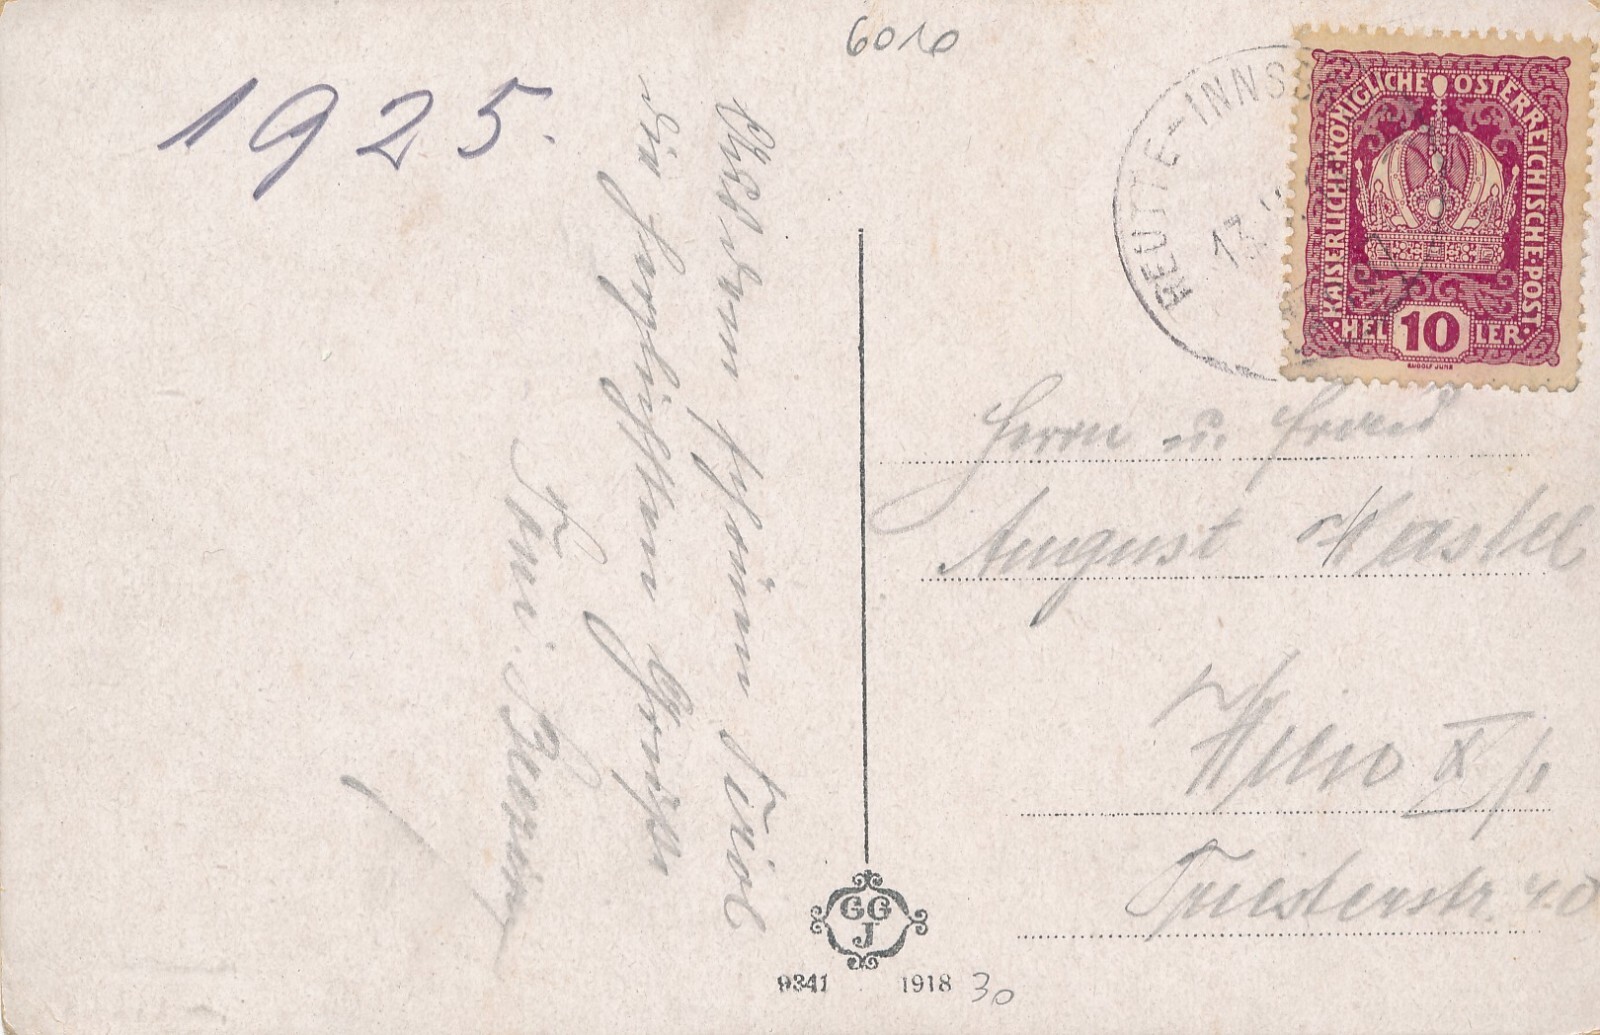 6010
1925.
REUTTE-INNSB
13
KAISERLICHE·KÖNIGLICHE ÖSTERREICHISCHE·POST
·HEL 10 LER·
RUDOLF JUNK
Aus dem schönen Tirol
die herzlichsten Grüsse
Toni
Herrn u. Frau
August
Wien X/1
Triesterstr. 40
GG
J
9341 1918 30